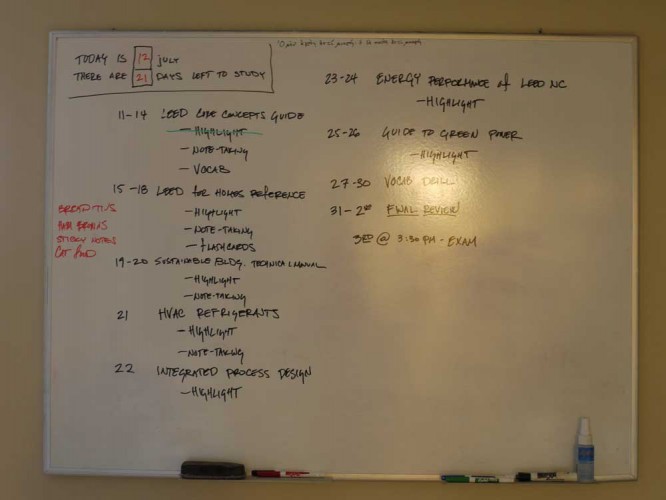 TODAY IS 12 JULY
THERE ARE 21 DAYS LEFT TO STUDY
11-14 LEED CORE CONCEPTS GUIDE
- HIGHLIGHT
- NOTE-TAKING
- VOCAB
15-18 LEED for HOMES REFERENCE
- HIGHLIGHT
- NOTE-TAKING
- FLASHCARDS
STICKY NOTES
CAT FOOD
19-20 SUSTAINABLE BLDG. TECHNICAL MANUAL
- HIGHLIGHT
- NOTE-TAKING
21 HVAC REFRIGERANTS
- HIGHLIGHT
- NOTE-TAKING
22 INTEGRATED PROCESS DESIGN
- HIGHLIGHT
23-24 ENERGY PERFORMANCE of LEED NC
- HIGHLIGHT
25-26 GUIDE TO GREEN POWER
- HIGHLIGHT
27-30 VOCAB DRILL!
31-2ND FINAL REVIEW
3RD @ 3:30 PM - EXAM